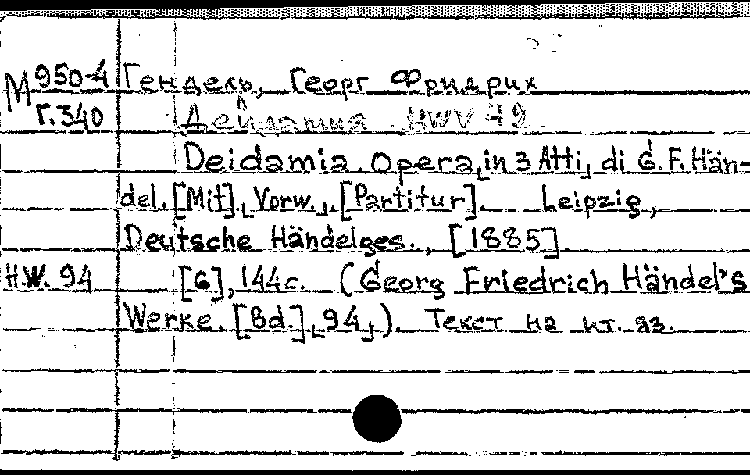 М 950-4 Гендель, Георг Фридрих
Г.340 Дейдамия HWV 42
Deidamia. Opera, in 3 Atti, di G. F. Hän-
del. [Mit] Vorw. [Partitur]. Leipzig,
Deutsche Händelges., [1885]
H.W. 94 [6], 144с. (Georg Friedrich Händel's
Werke. [Bd.] 94). Текст на ит. яз.